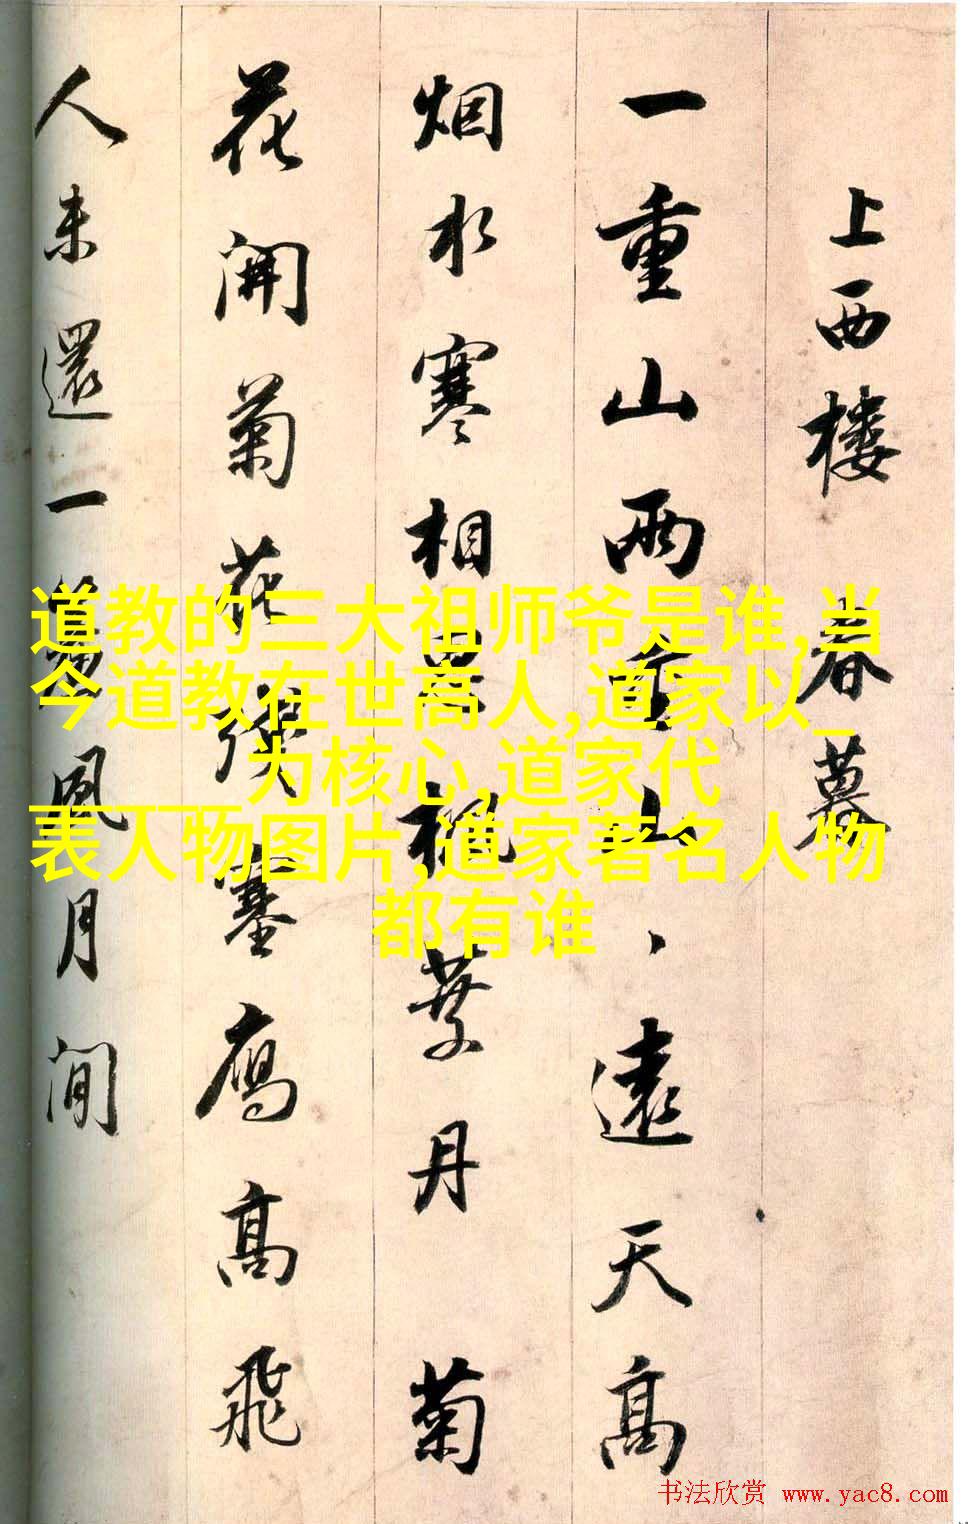 上西楼 春暮
一重山兩重山、遠天高
烟水寒相思楓葉丹 菊
花開菊花殘塞鴈高飛
人未還一簾風月閒
道教的三大祖师爷是谁,当
今道教在世高人,道家以_
___为核心,道家代
表人物图片,道家著名人物
都有谁
书法欣赏 www.yac8.com